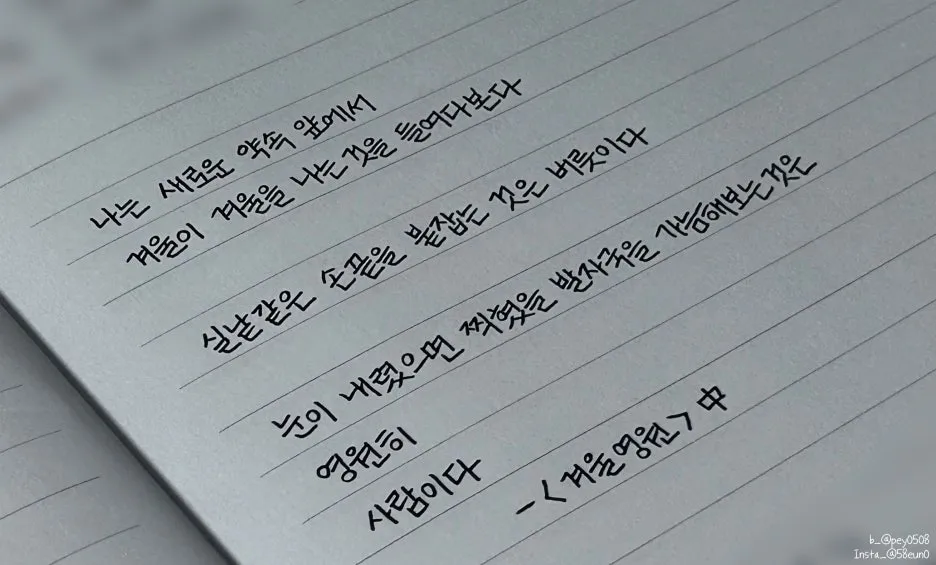 나는 새로운 약속 앞에서
겨울이 겨울을 나는 것을 들여다본다
실낱같은 손끝을 붙잡는 것은 버릇이다
눈이 내렸으면 찍혔을 발자국을 가늠해보는것은
영원히
사람이다
-<겨울영원> 中
b_@pey0508
Insta_@58eun0